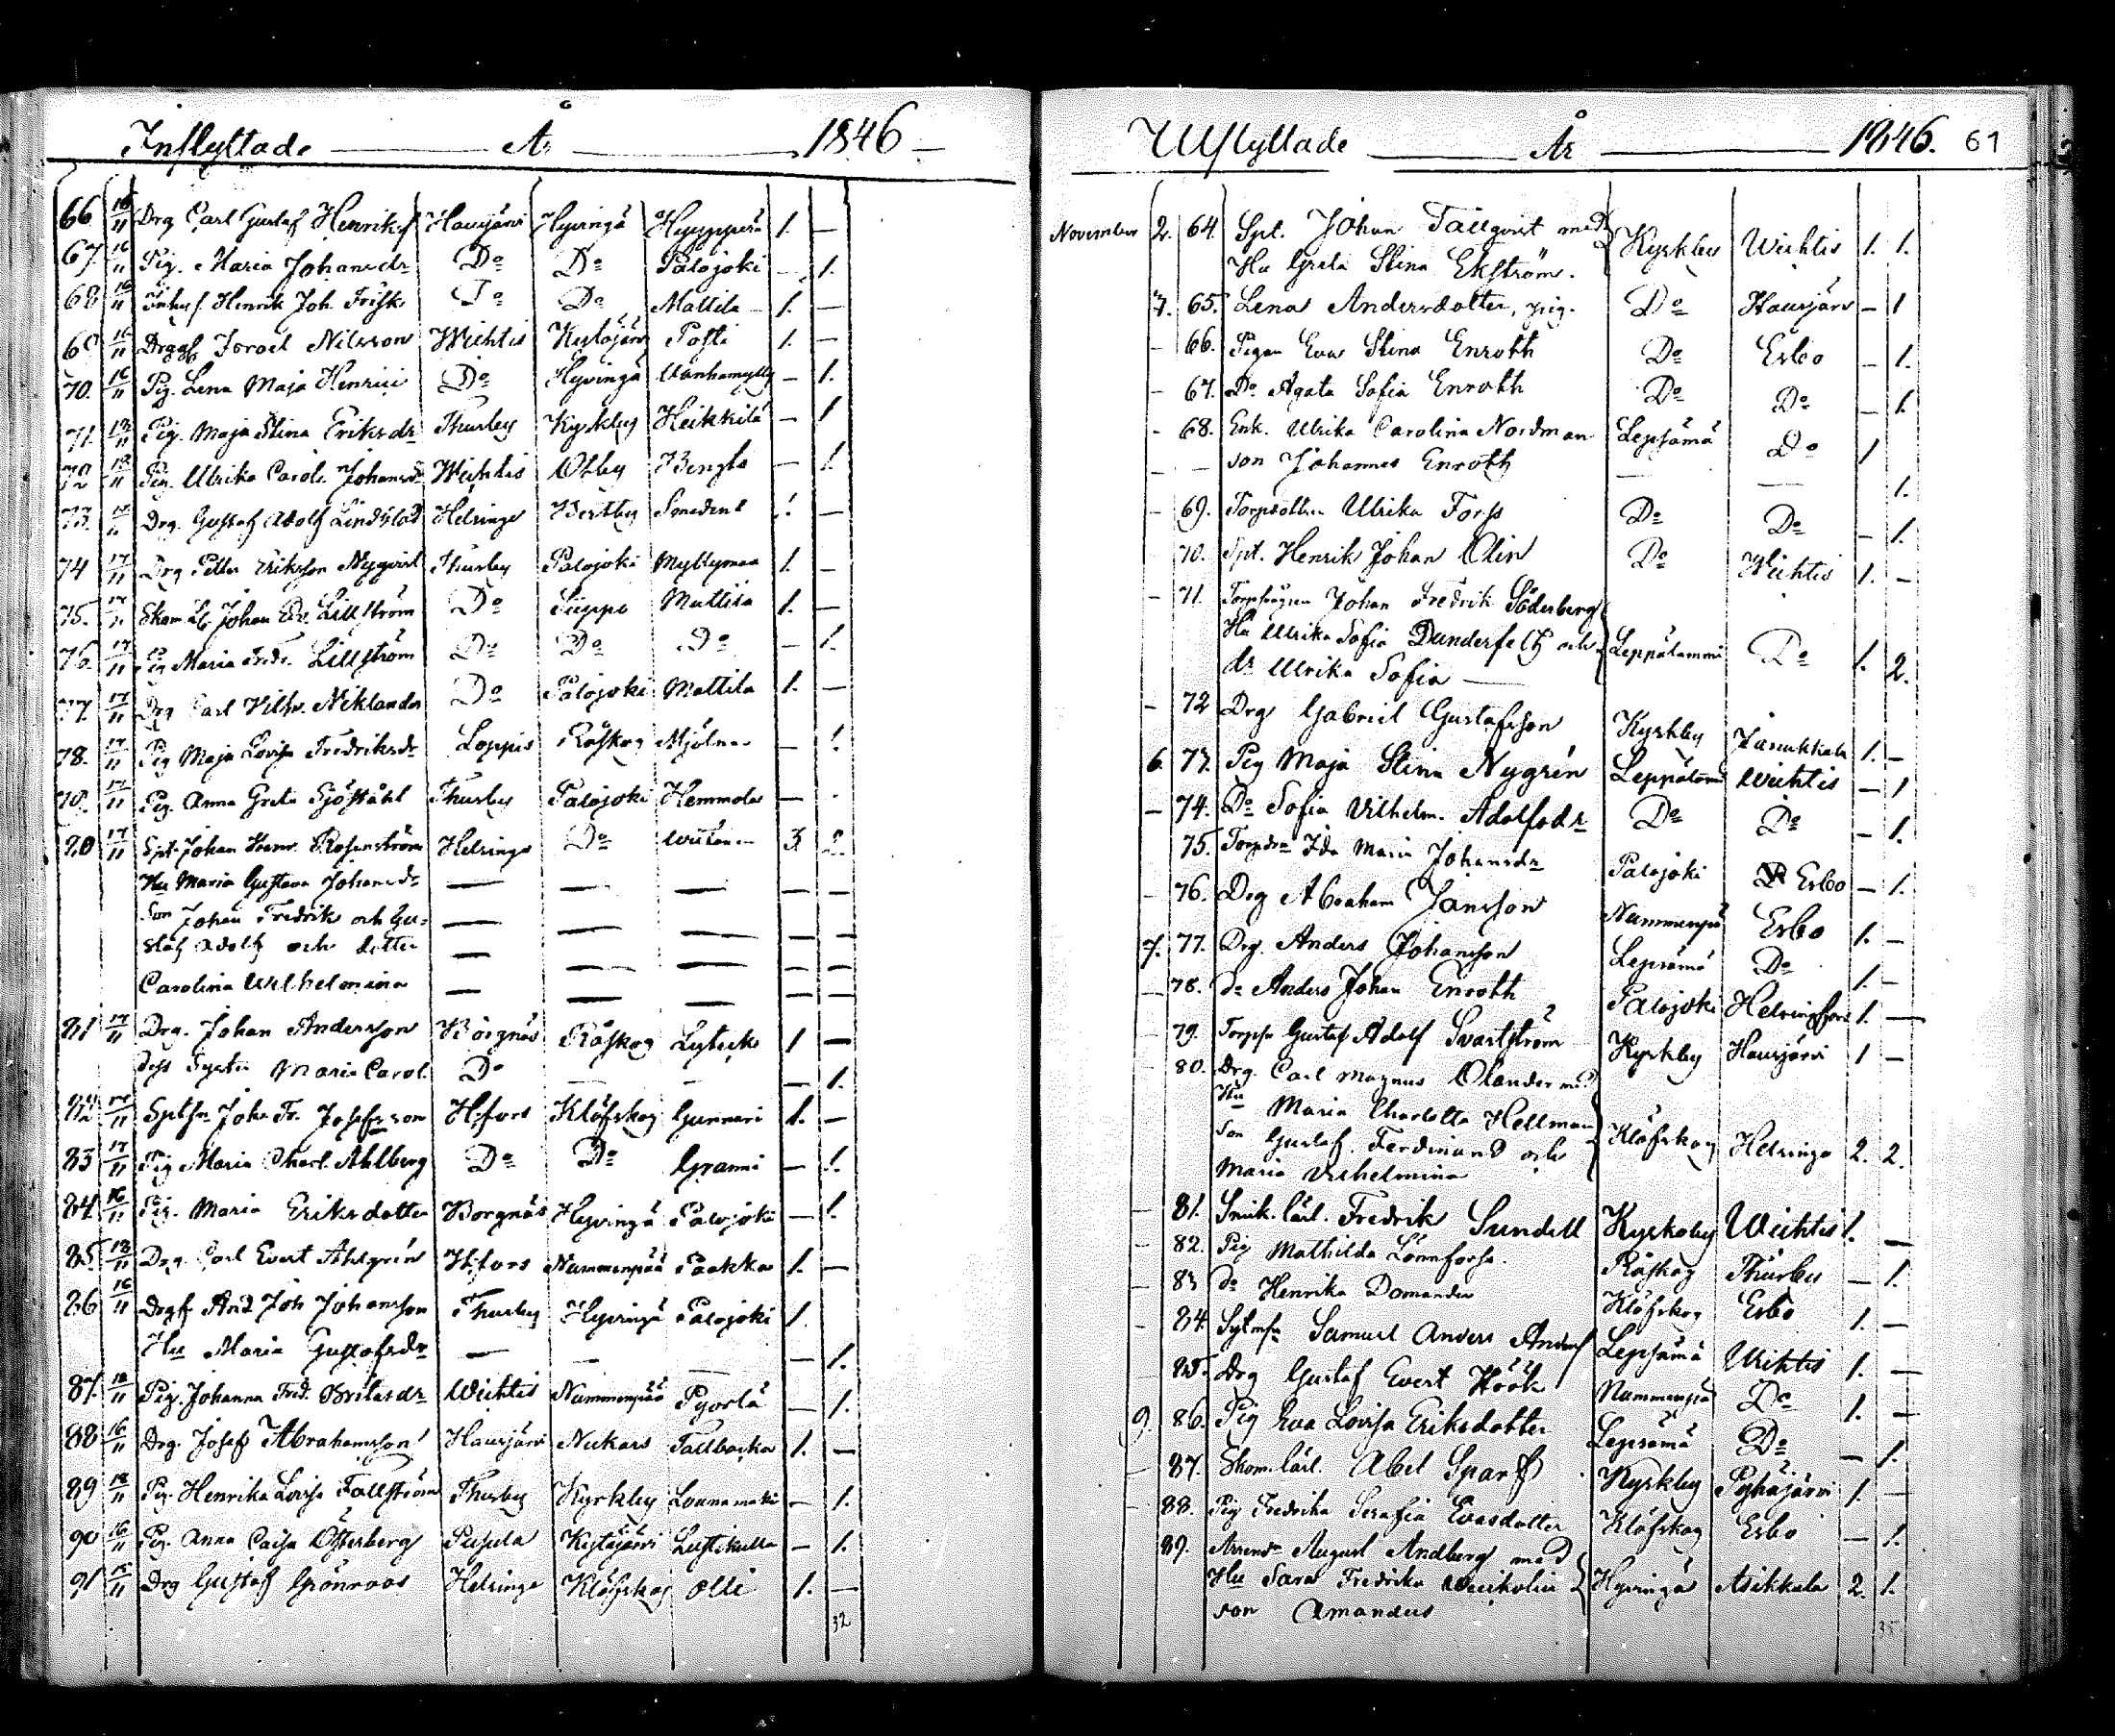 Inflyttade År 1846
66 16/11 Drg Carl Gustaf Henriksf Hausjärvi Hyvingå Hyyppärä 1. —
67. 16/11 Pig. Maria Johansdr Do Do Palojoki — 1.
68 16/11 Henrik Joh. Frisk Do Do Mattila 1. —
69 16/11 Israel Nilsson Wichtis Kytäjärvi Posti 1. —
70. 16/11 Pig. Lena Maja Henrici Do Hyvingå Wanhamylly — 1.
71. 13/11 Pig. Maja Stina Eriksdr Thusby Kyrkby Heikkilä — 1
72 13/11 Pig. Ulrika Carol. Johansd. Wichtis Olby Bengts — 1.
73. Drg. Gustaf Adolf Lindblad Helsinge Smedens 1. —
74 17/11 Drg Petter Eriksson Nyqvist Thusby Palojoki Myllymaa 1. —
75. 17/11 Skom. Johan Lillström Do Siippo Mattila 1. —
76. 17/11 Pig Maria Fredr. Lillström Do Do Do — 1.
77. 17/11 Drg Carl Vilh. Niklander Do Palojoki Mattila 1. —
78. 17/11 Pig Maja Lovisa Fredriksdr Loppis Råskog Mjölnar — 1.
79. 17/11 Pig. Anna Greta Sjöståhl Thusby Palojoki Hemmola —
80 17/11 Spt. Johan Henr. Rosenström Helsinge Do 3. 2.
Hu Maria Gustava Johansdr — — — — —
Son Johan Fredrik och Gu= — — — — —
staf Adolf och dotter — — — — —
Carolina Wilhelmina — — — — —
81 17/11 Drg. Johan Andersson Borgnäs Råskog 1 —
dess Syster Maria Carol. Do — — — 1.
82 17/11 Joh. Fr. Josefsson H:fors Klöfskog Gunnari 1. —
83 17/11 Pig Maria Charl. Ahlberg Do Do Granni — 1.
84 16/11 Pig. Maria Eriksdotter Borgnäs Hyvingå Palojoki — 1.
85 13/11 Drg. Carl Evert Ahlgrén H:fors Nummenpää Paakka 1. —
86 16/11 And Joh Johansson Thusby Hyvingå Palojoki 1.
Hu Maria Gustafsdr — — — — 1.
87. 12/11 Pig. Johanna Fred. Britasdr Wichtis Nummenpää Pyörlä — 1.
88 16/11 Drg. Josef Abrahamsson Hausjärvi Nukars Tallbacka 1. —
89 18/11 Pig. Henrika Lovisa Fallström Thusby Kyrkby Lounamäki — 1.
90 16/11 Pig. Anna Caisa Österberg Pusula Kytäjärvi Lustikulla — 1.
91 Drg Gustaf Grönroos Helsinge Klöfskog Olli 1. —
32
Utflyttade År 1846. 61
November 2. 64. Spt. Johan Tällqvist med Kyrkby Wichtis 1. 1.
Hu Greta Stina Ekström.
7. 65. Lena Andersdotter, pig. Do Hausjärvi — 1
— 66. Pigan Eva Stina Enroth Do Esbo — 1.
— 67. Do Agata Sofia Enroth Do Do — 1.
- 68. Enk. Ulrika Carolina Nordman Lepsämä Do 1
— — son Johannes Enroth — — 1.
— 69. Ulrika Forss Do Do — 1.
70. Spt. Henrik Johan Olin Do Wichtis 1. —
— 71. Johan Fredrik Söderberg
Hu Ulrika Sofia Dunderfelt och Leppälammi Do 1. 2.
dr Ulrika Sofia —
— 72 Drg Gabriel Gustafsson Kyrkby Janakkala 1. —
6. 73. Pig Maja Stina Nygrén Leppälammi Wichtis — 1
— 74. Do Sofia Vilhelm. Adolfsdr Do Do — 1.
75. Ida Maria Johansdr Palojoki Esbo — 1.
— 76. Drg Abraham Jansson Nummenpää Esbo 1. —
7. 77. Drg. Anders Johansson Lepsämä Do 1. —
— 78. do Anders Johan Enroth Palojoki Helsingfors 1. —
— 79. Gustaf Adolf Svartström Kyrkby Hausjärvi 1 —
80. Drg. Carl Magnus Olander med
Hu Maria Charlotta Hellman Klöfskog Helsinge 2. 2.
Son Gustaf Ferdinand och
Maria Vilhelmina
— 81. Snik. lärl. Fredrik Sundell Kyrkoby Wichtis 1. —
— 82. Pig Mathilda Lönnforss. Råskog Thusby — 1.
— 83 do Henrika Domander Klöfskog Esbo 1. —
- 84. Samuel Anders Lepsämä Wichtis 1. —
85. Drg Gustaf Evert Höök Nummenpää Do 1. —
9. 86. Pig Eva Lovisa Eriksdotter Lepsämä Do — 1.
— 87. Skom. lärl. Abel Sparf Kyrkby Pyhäjärvi 1. —
— 88. Pig Fredrika Serafia Evasdotter Klöfskog Esbo — 1.
89. August Andberg med
Hu Sara Fredrika Hyvingå Asikkala 2. 1.
son Amandus
35